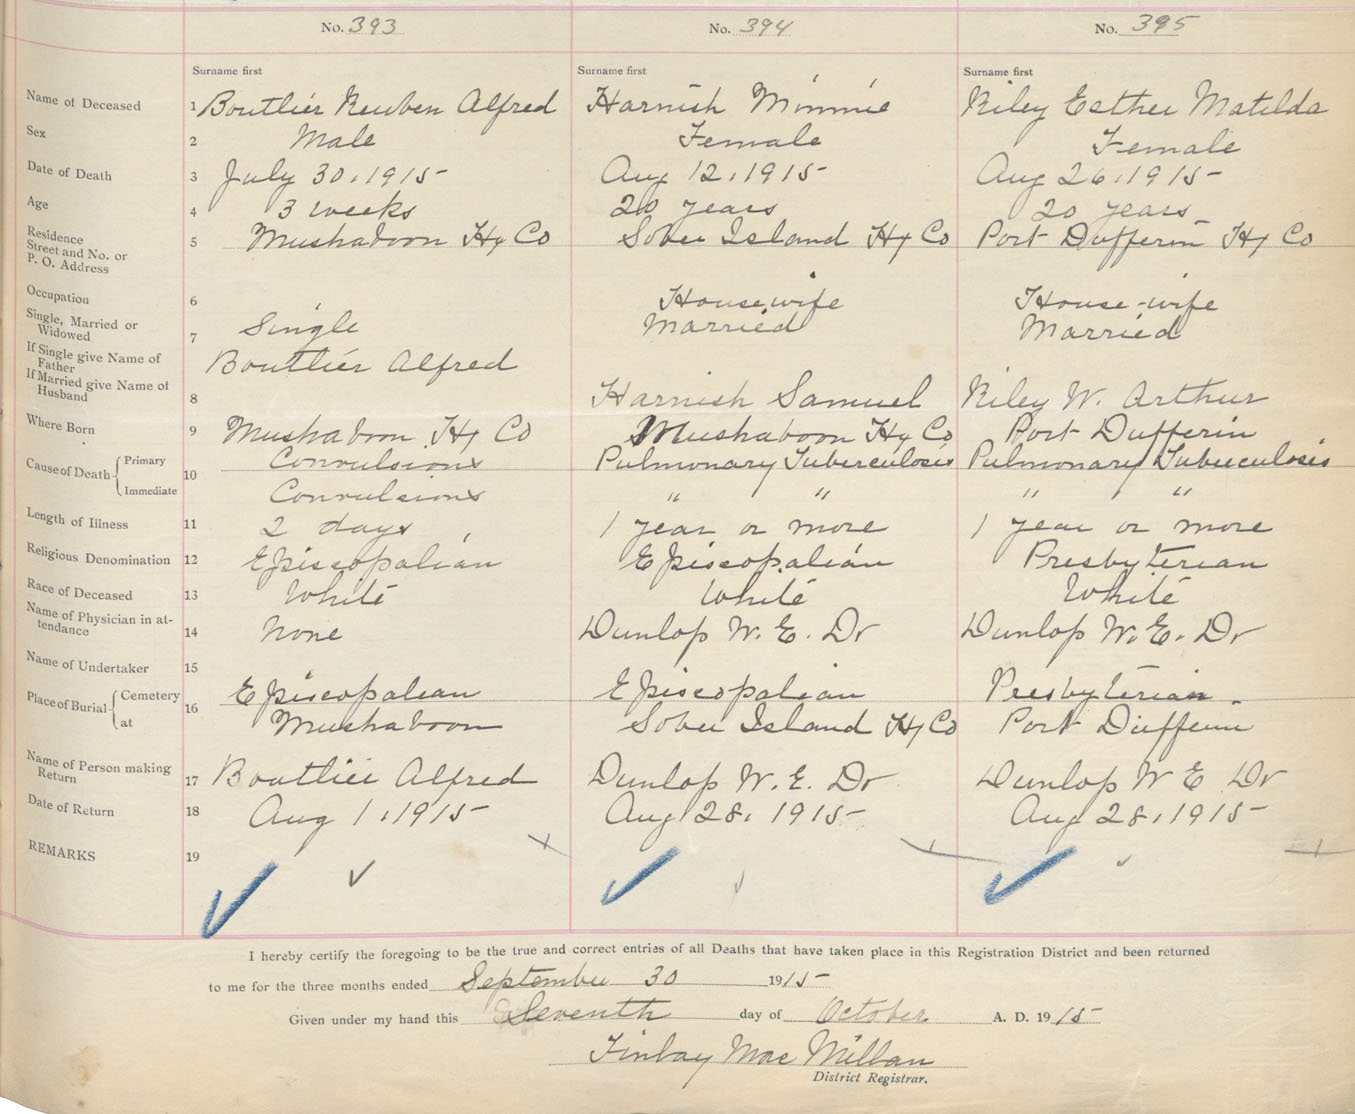 No. 393 No. 394 No. 395
Surname first Surname first Surname first
Name of Deceased 1 Boutlier Reuben Alfred Harnish Minnie Riley Esther Matilda
Sex 2 Male Female Female
Date of Death 3 July 30, 1915 Aug 12, 1915 Aug 26, 1915
Age 4 3 weeks 20 years 20 years
Residence Street and No. or P. O. Address 5 Mushaboon Hx Co Sober Island Hx Co Port Dufferin Hx Co
Occupation 6 Housewife House-wife
Single, Married or Widowed 7 Single Married Married
If Single give Name of Father Boutlier Alfred
If Married give Name of Husband 8 Harnish Samuel Riley W. Arthur
Where Born 9 Mushaboon Hx Co Mushaboon Hx Co Port Dufferin
Cause of Death Primary 10 Convulsions Pulmonary Tuberculosis Pulmonary Tuberculosis
Immediate Convulsions " " " "
Length of Illness 11 2 days 1 year or more 1 year or more
Religious Denomination 12 Episcopalian Episcopalian Presbyterian
Race of Deceased 13 White White White
Name of Physician in attendance 14 None Dunlop W. E. Dr Dunlop W. E. Dr
Name of Undertaker 15
Place of Burial Cemetery 16 Episcopalian Episcopalian Presbyterian
at Mushaboon Sober Island Hx Co Port Dufferin
Name of Person making Return 17 Boutlier Alfred Dunlop W. E. Dr Dunlop W E Dr
Date of Return 18 Aug 1, 1915 Aug 28, 1915 Aug 28, 1915
REMARKS 19
I hereby certify the foregoing to be the true and correct entries of all Deaths that have taken place in this Registration District and been returned
to me for the three months ended September 30 1915
Given under my hand this Seventh day of October A. D. 1915
Finlay MacMillan
District Registrar.